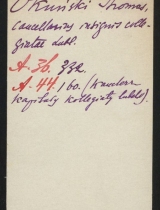 Okuński Thomas,
cancellarius insignis colle-
giatae Lubl.
A. 36. 332.
A. 44. 160. (
kapituły kollegiaty lubels.).